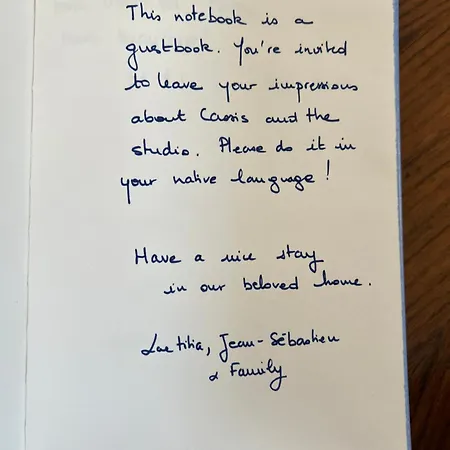 This notebook is a
guestbook. You're invited
to leave your impressions
about Cassis and the
studio. Please do it in
your native language!
Have a nice stay
in our beloved home.
Laetitia, Jean-Sébastien
& Family